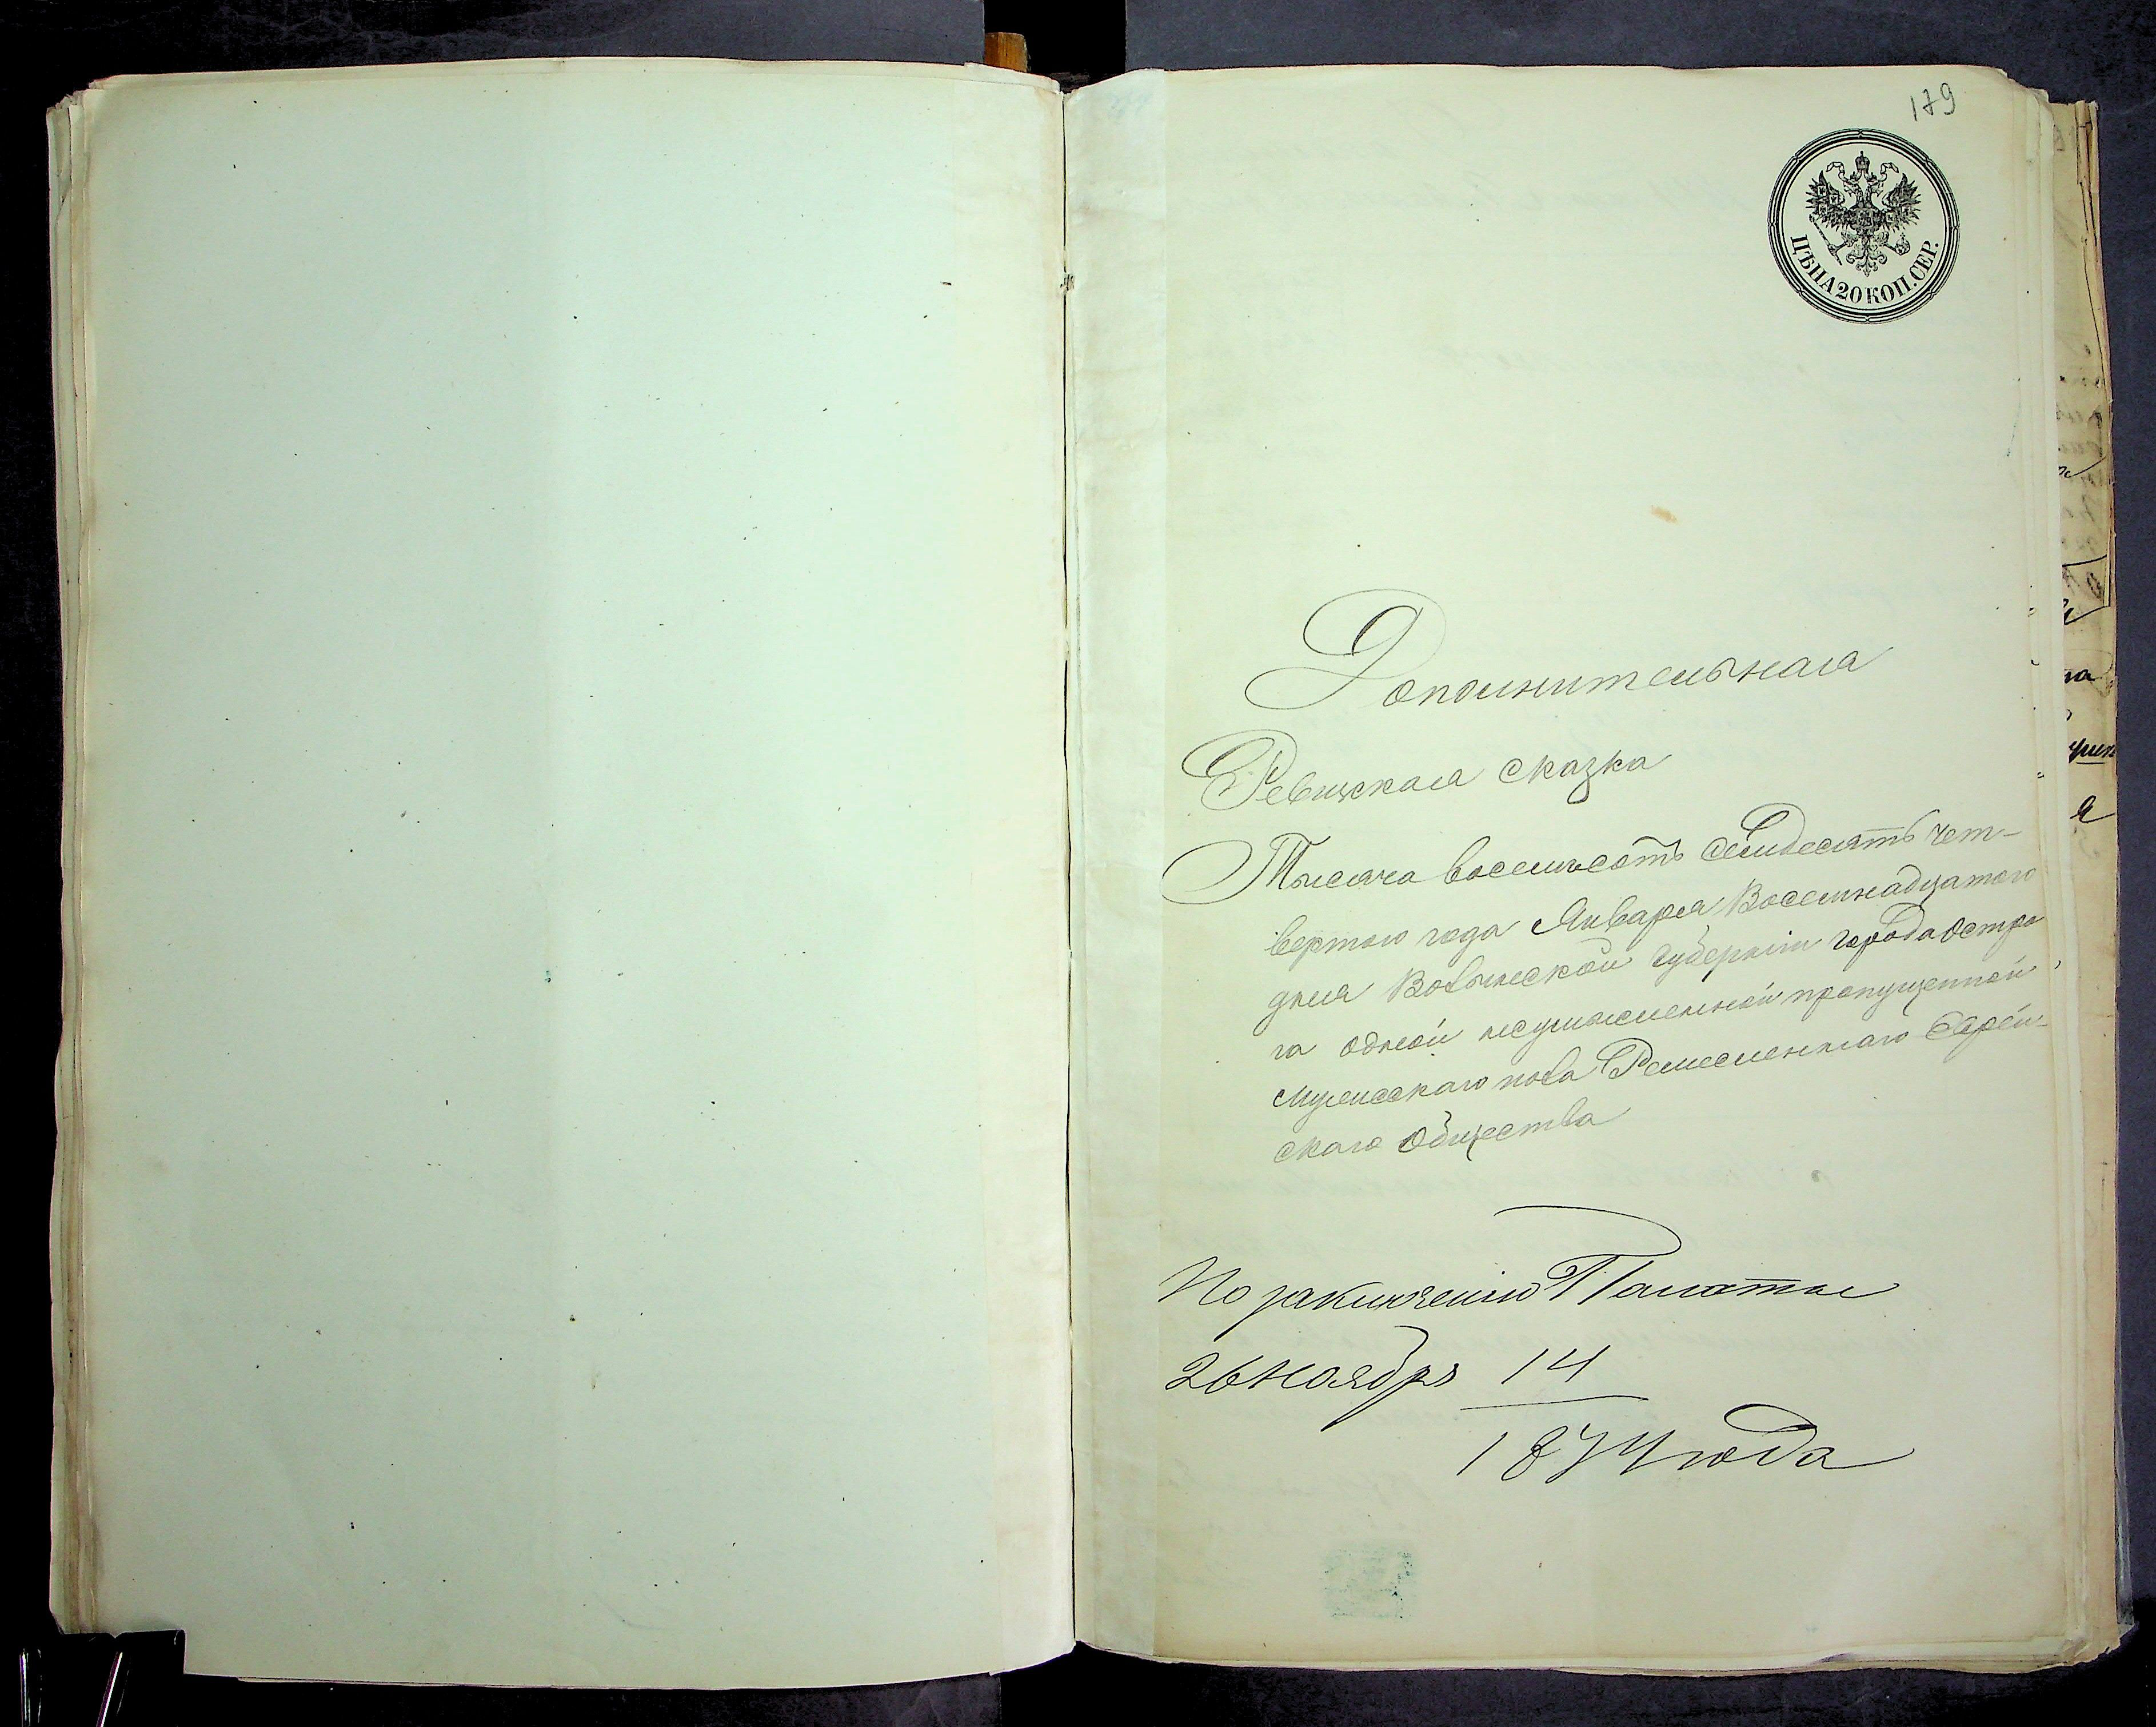 179
ЦѢНА 20 КОП. СЕР.
Дополнительная
Ревижская сказка
Тысяча восемьсотъ Семдесятъ чет-
вертого года Января Восемнадцатого
дня Волынской Губерніи города Остро
га одной неумышленной пропущенной
мужескаго пола Ремесленнаго Еврей-
скаго Общества
По заключенію Палаты
26 Ноября 14
1874 года